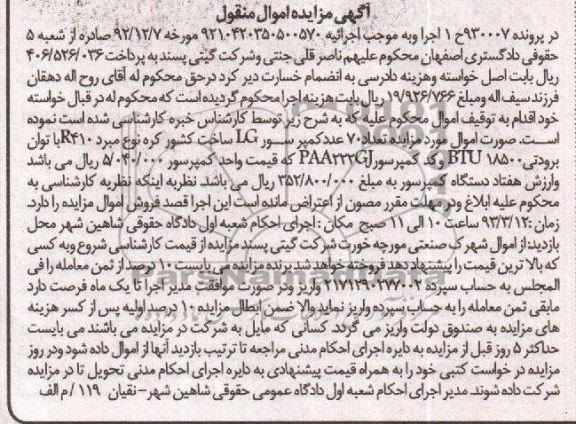 آگهی مزایده اموال منقول
در پرونده ۹۳۰۰۰۷ح ۱ اجرا وبه موجب اجرائیه ۹۲۱۰۴۲۰۳۵۰۵۰۰۵۷۰ مورخه ۹۲/۱۲/۷ صادره از شعبه ۵
حقوقی دادگستری اصفهان محکوم علیهم ناصر قلی جنتی وشرکت گیتی پسند به پرداخت ۴۰۶/۵۲۶/۰۳۶
ریال بابت اصل خواسته وهزینه دادرسی به انضمام خسارت دیر کرد درحق محکوم له آقای روح اله دهقان
فرزند سیف اله ومبلغ ۱۹/۹۲۶/۷۶۶ ریال بابت هزینه اجرا محکوم گردیده است که محکوم له در قبال خواسته
خود اقدام به توقیف اموال محکوم علیه که به شرح زیر توسط کارشناس خبره کارشناسی شده است نموده
است. صورت اموال مورد مزایده تعداد۷۰ عددکمپر سور LG ساخت کشور کره نوع مبرد R۴۱۰با توان
برودتی۱۸۵۰۰ BTU وکد کمپرسورPAA۲۲۲GJ که قیمت واحد کمپرسور ۵/۰۴۰/۰۰۰ ریال می باشد
وارزش هفتاد دستگاه کمپرسور به مبلغ ۳۵۲/۸۰۰/۰۰۰ ریال می باشد. نظریه اینکه نظریه کارشناسی به
محکوم علیه ابلاغ ودر مهلت مقرر مصون از اعتراض مانده است این اجرا قصد فروش اموال مزایده را دارد.
زمان :۹۳/۳/۱۲ ساعت ۱۰ الی ۱۱ صبح مکان : اجرای احکام شعبه اول دادگاه حقوقی شاهین شهر محل
بازدید:از اموال شهرک صنعتی مورچه خورت شرکت گیتی پسند مزایده از قیمت کارشناسی شروع وبه کسی
که بالا ترین قیمت را پیشنهاد دهد فروخته خواهد شد برنده مزایده می بایست ۱۰ درصد از ثمن معامله را فی
المجلس به حساب سپرده ۲۱۷۱۲۹۰۲۷۷۰۰۲ واریز ودر صورت موافقت مدیر اجرا تا یک ماه فرصت دارد
مابقی ثمن معامله را به حساب سپرده واریز نماید والا ضمن ابطال مزایده ۱۰ درصد اولیه پس از کسر هزینه
های مزایده به صندوق دولت واریز می گردد. کسانی که مایل به شرکت در مزایده می باشند می بایست
حداکثر ۵ روز قبل از مزایده به دایره اجرای احکام مدنی مراجعه تا ترتیب بازدید آنها از اموال داده شود ودر روز
مزایده در خواست کتبی خود را به همراه قیمت پیشنهادی به دایره اجرای احکام مدنی تحویل تا در مزایده
شرکت داده شوند. مدیر اجرای احکام شعبه اول دادگاه عمومی حقوقی شاهین شهر – نقیان ۱۱۹ /م الف